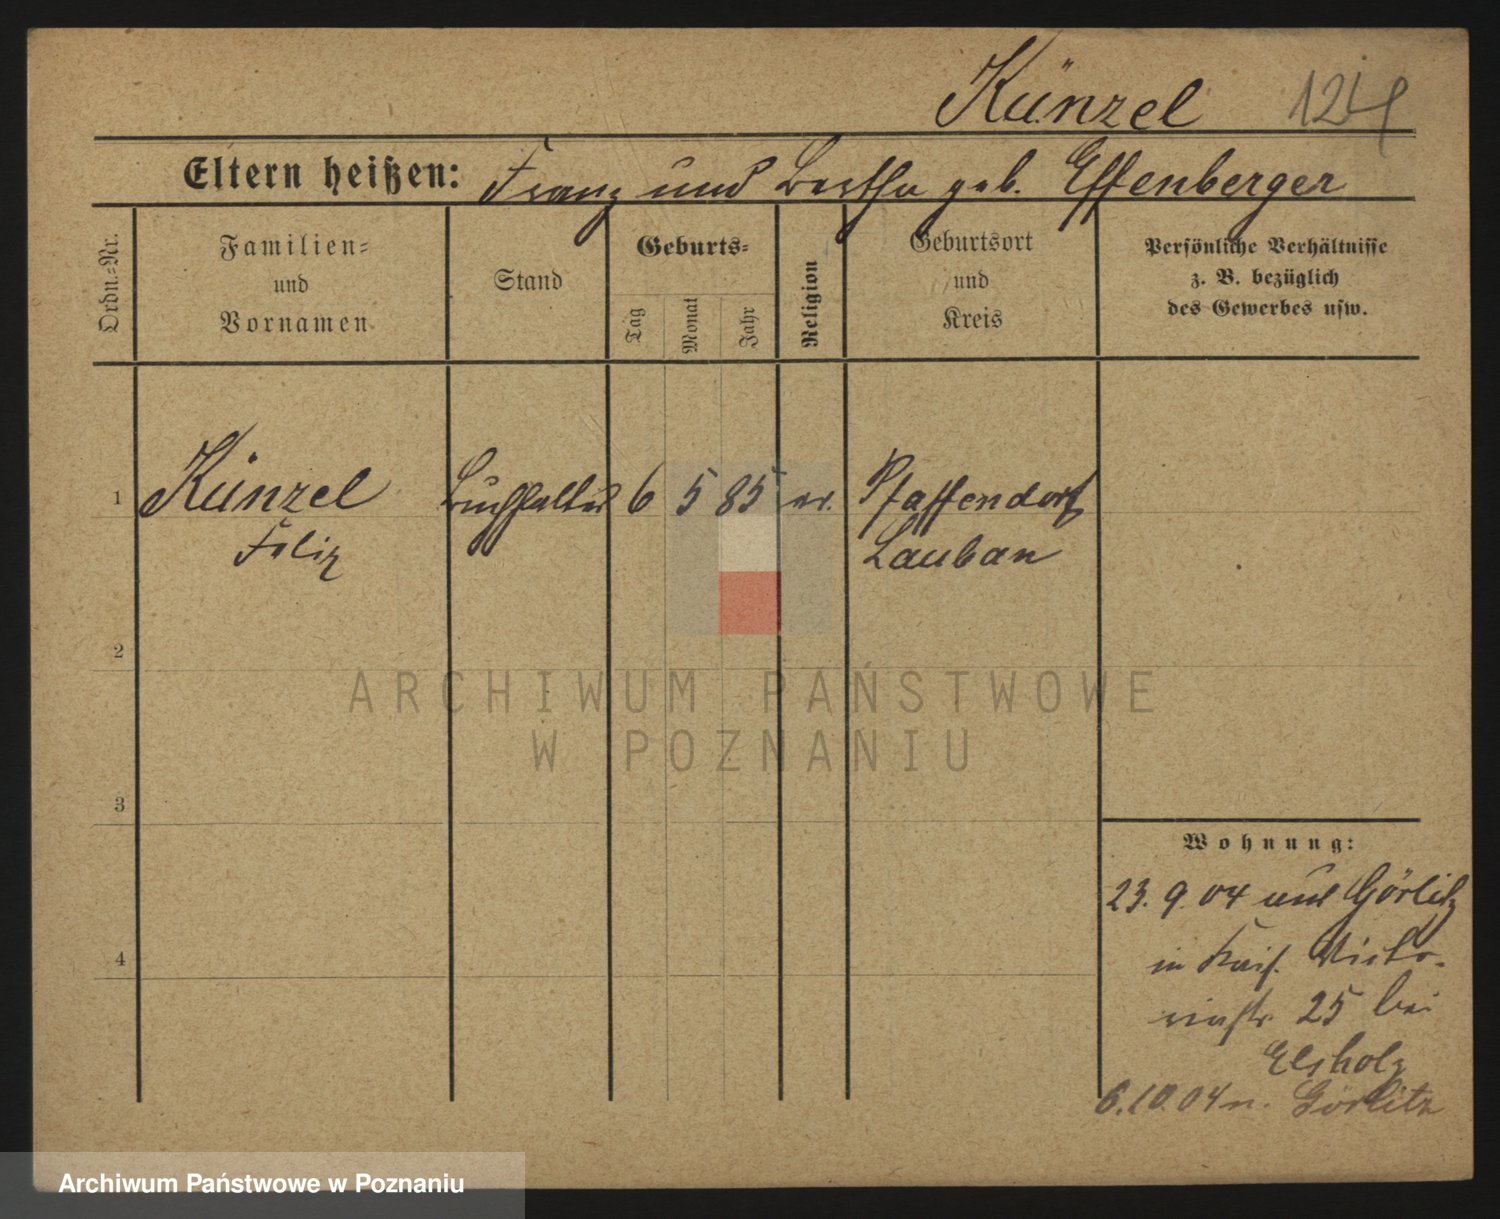 Künzel 124
Eltern heißen: Franz und Bertha geb. Effenberger
Ordn.=Nr.
Familien=
und
Vornamen
Stand
Geburts=
Tag
Monat
Jahr
Religion
Geburtsort
und
Kreis
Persönliche Verhältnisse
z. B. bezüglich
des Gewerbes usw.
1 Künzel Buchhalter 6 5 85 ev. Pfaffendorf
Felix Lauban
2
3
4
Wohnung:
23. 9. 04 aus Görlitz
in Kais. Victo-
riastr. 25 bei
Elsholz
6.10.04 n. Görlitz
ARCHIWUM PAŃSTWOWE
W POZNANIU
Archiwum Państwowe w Poznaniu